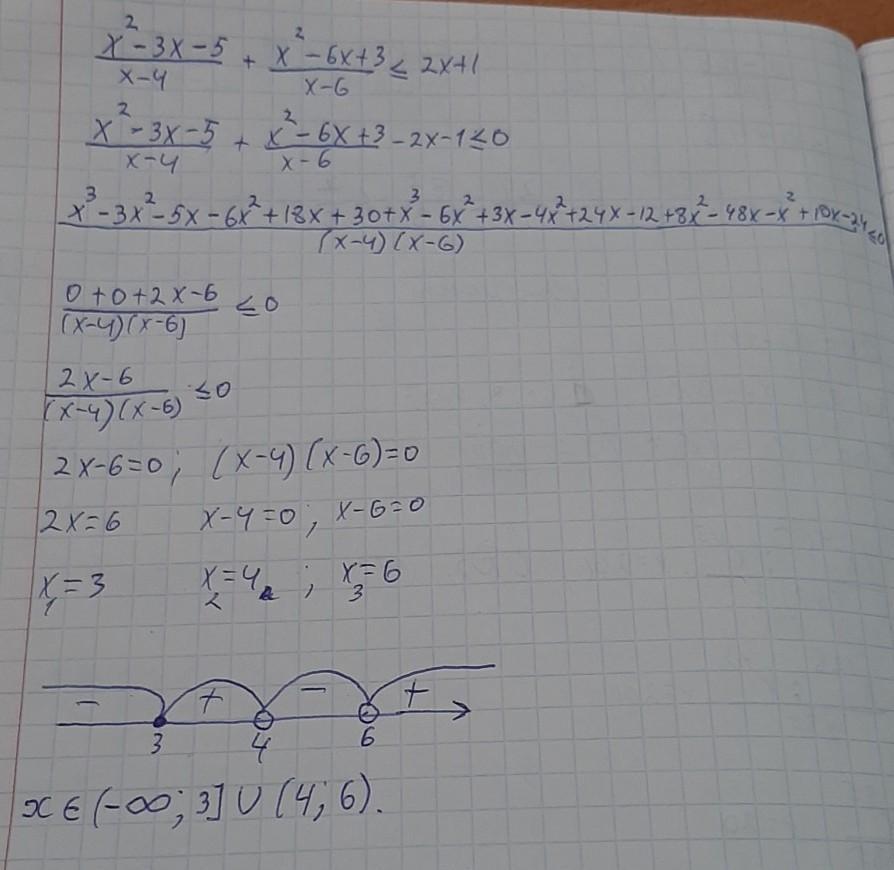 (x²-3x-5)/(x-4) + (x²-6x+3)/(x-6) ≤ 2x+1
(x²-3x-5)/(x-4) + (x²-6x+3)/(x-6) -2x-1≤0
(x³-3x²-5x-6x²+18x+30+x³-6x²+3x-4x²+24x-12+8x²-48x-x²+10x-24)/((x-4)(x-6)) ≤0
(0+0+2x-6)/((x-4)(x-6)) ≤0
(2x-6)/((x-4)(x-6)) ≤0
2x-6=0; (x-4)(x-6)=0
2x=6 x-4=0; x-6=0
x₁=3 x₂=4; x₃=6
- + - +
3 4 6
x∈(-∞;3]∪(4;6).